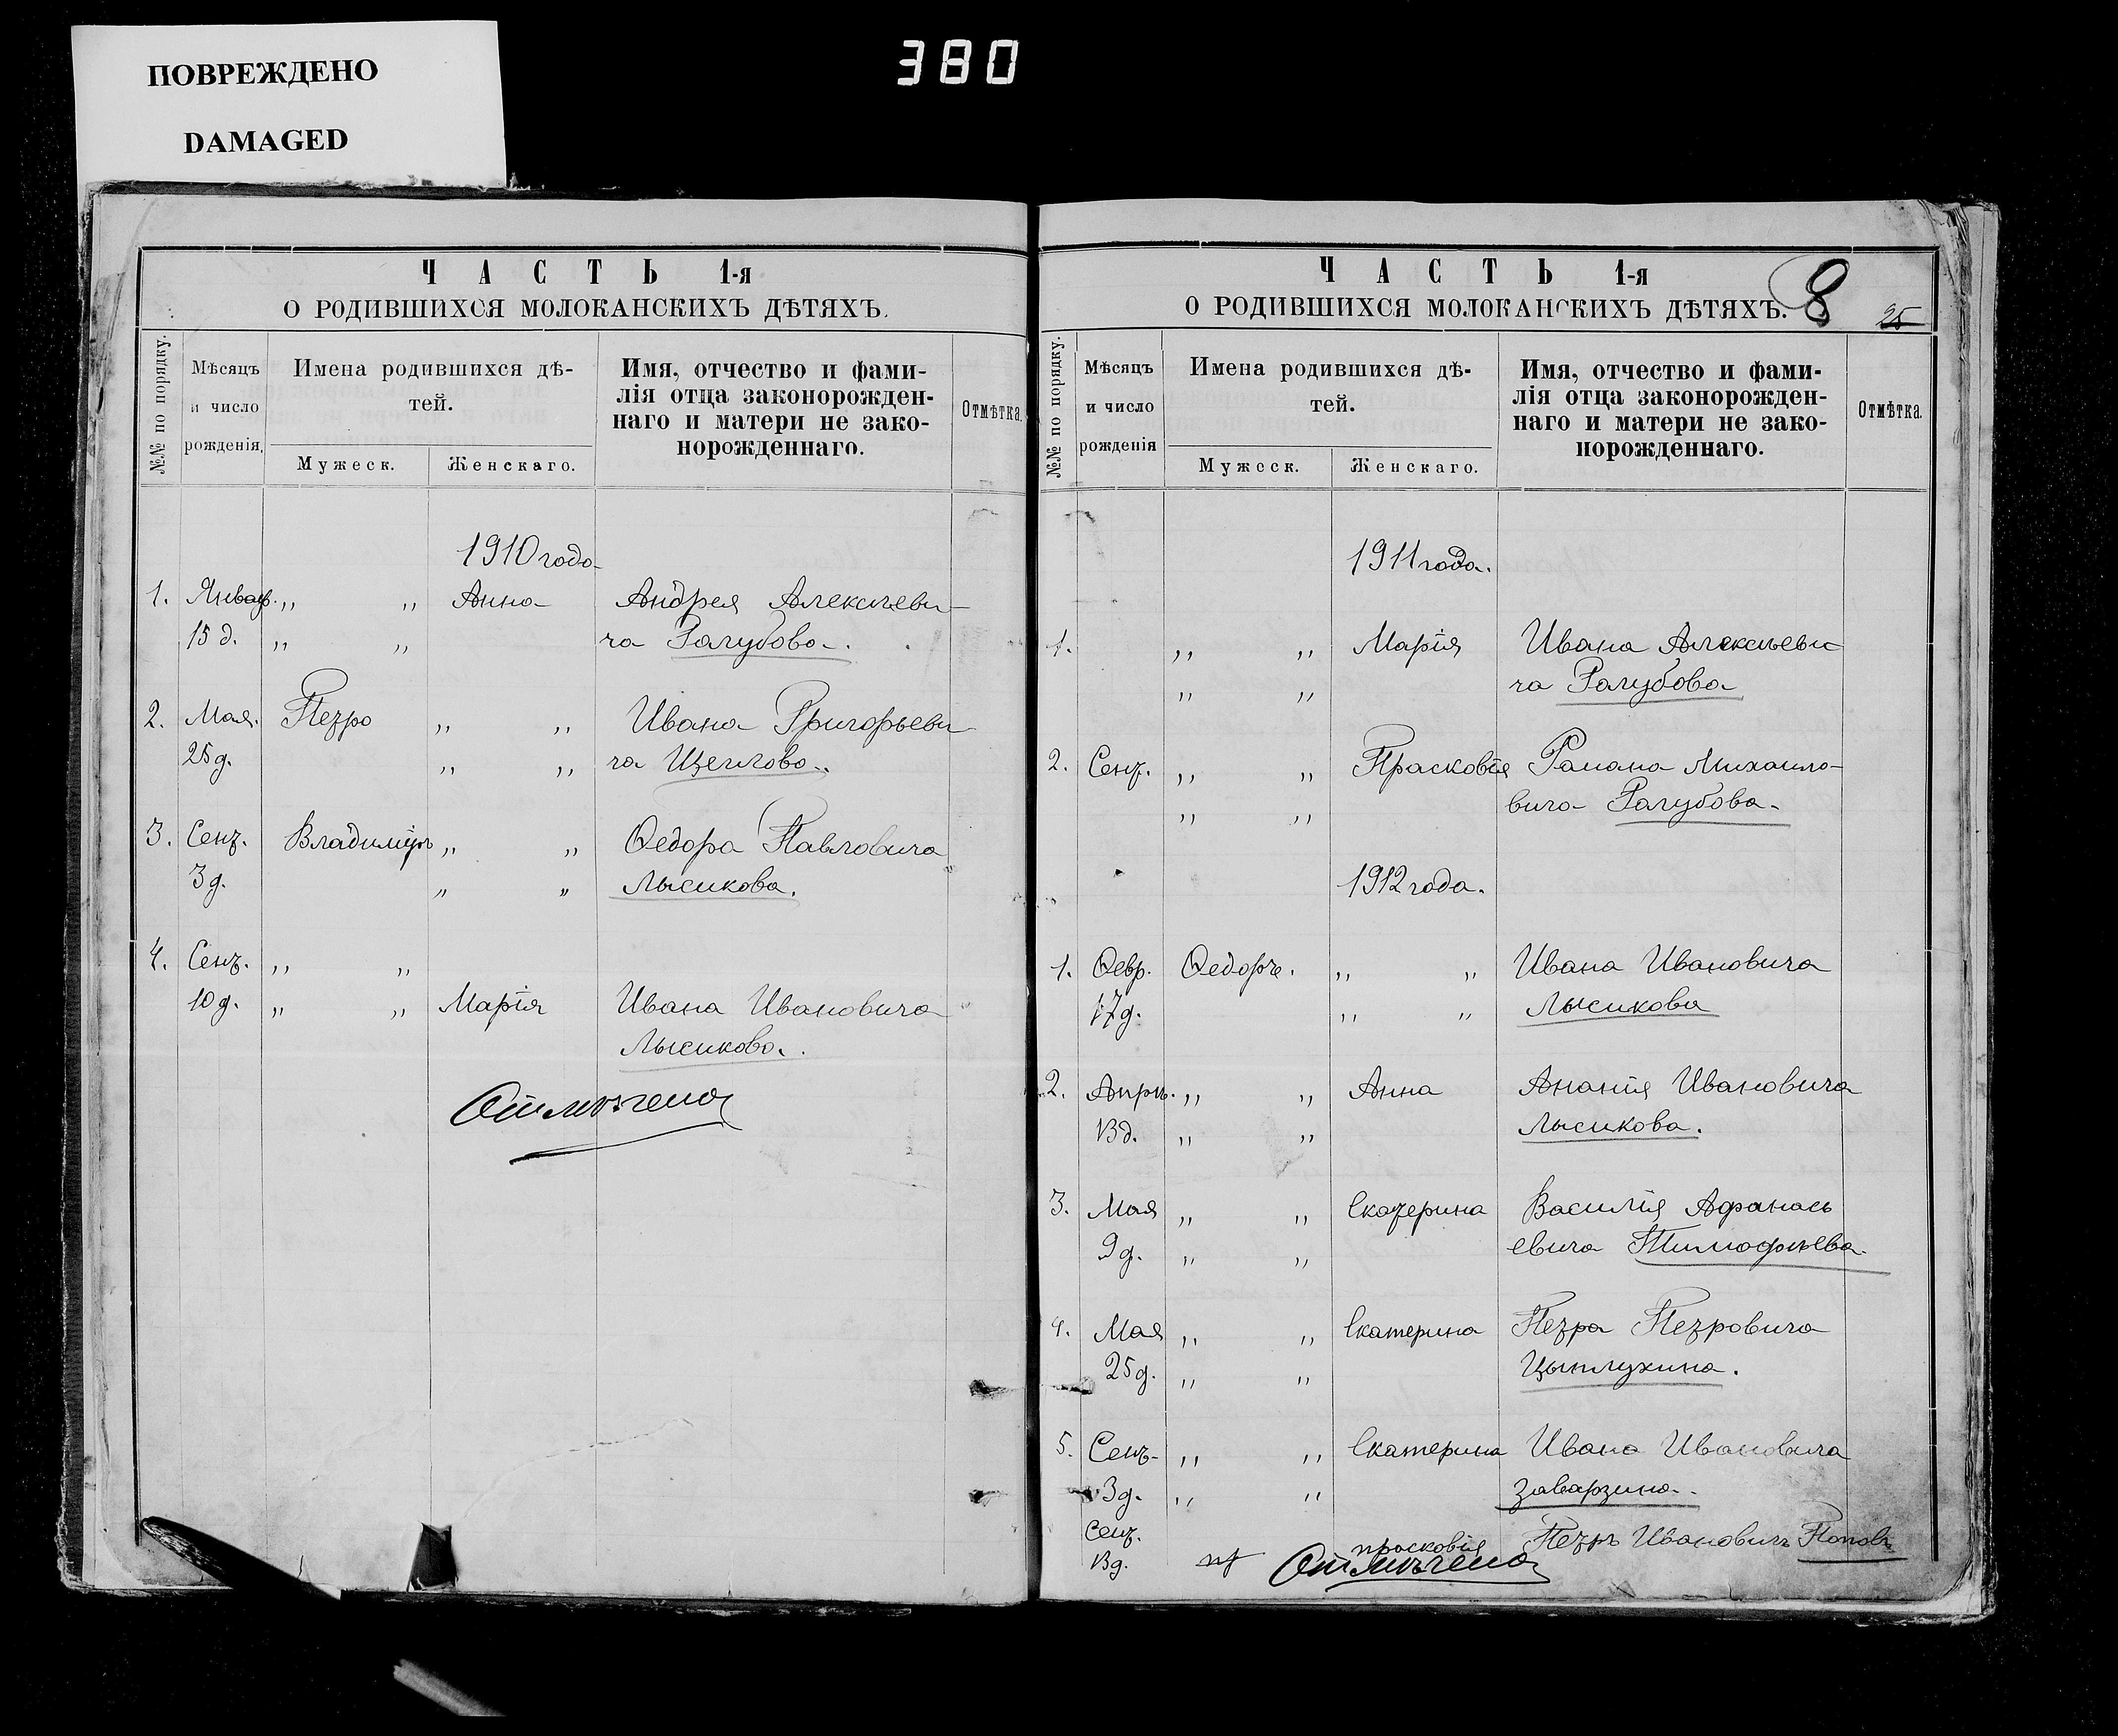 ПОВРЕЖДЕНО
DAMAGED
380
ЧАСТЬ 1-я
О РОДИВШИХСЯ МОЛОКАНСКИХЪ ДѢТЯХЪ.
№№ по порядку.
Мѣсяцъ и число рожденія.
Имена родившихся дѣ-
тей.
Мужеск.
Женскаго.
Имя, отчество и фами-
лія отца законорожден-
наго и матери не зако-
норожденнаго.
Отмѣтка.
1910 года
1. Январ. „ „ Анна Андрея Алексѣеви
15 д. „ „ ча Галубова.
2. Мая. Петро „ „ Ивана Григорьеви
25 д. „ „ ча Щеглова.
3. Сент. Владиміръ „ „ Ѳедора Павловича
3 д. „ „ Лысикова.
4. Сент. „ „
10 д. „ „ Марія Ивана Ивановича
Лысикова.
Отмѣчена
ЧАСТЬ 1-я
8
О РОДИВШИХСЯ МОЛОКАНСКИХЪ ДѢТЯХЪ.
25
№№ по порядку.
Мѣсяцъ и число рожденія
Имена родившихся дѣ-
тей.
Мужеск.
Женскаго.
Имя, отчество и фами-
лія отца законорожден-
наго и матери не зако-
норожденнаго.
Отмѣтка.
1911 года.
1. „ „ Марія Ивана Алексѣеви
„ „ ча Галубова
2. Сент. „ „ Прасковія Рамана Михаило-
„ „ вича Галубова.
1912 года.
1. Ѳевр. Ѳедоръ. „ „ Ивана Ивановича
17 д. „ „ Лысикова
2. Апрѣ. „ „ Анна Ананія Ивановича
13 д. „ „ Лысикова.
3. Мая „ „ Екатерина Василія Афанась
9 д. „ „ евича Тимофѣева.
4. Мая „ „ Екатерина Петра Петровича
25 д. „ „ Цыплухина.
5. Сент. „ „ Екатерина Ивана Ивановича
3 д. „ „ Заварзина.
Сент. прасковія Петръ Ивановичъ Поповъ
13 д. Отмѣчена